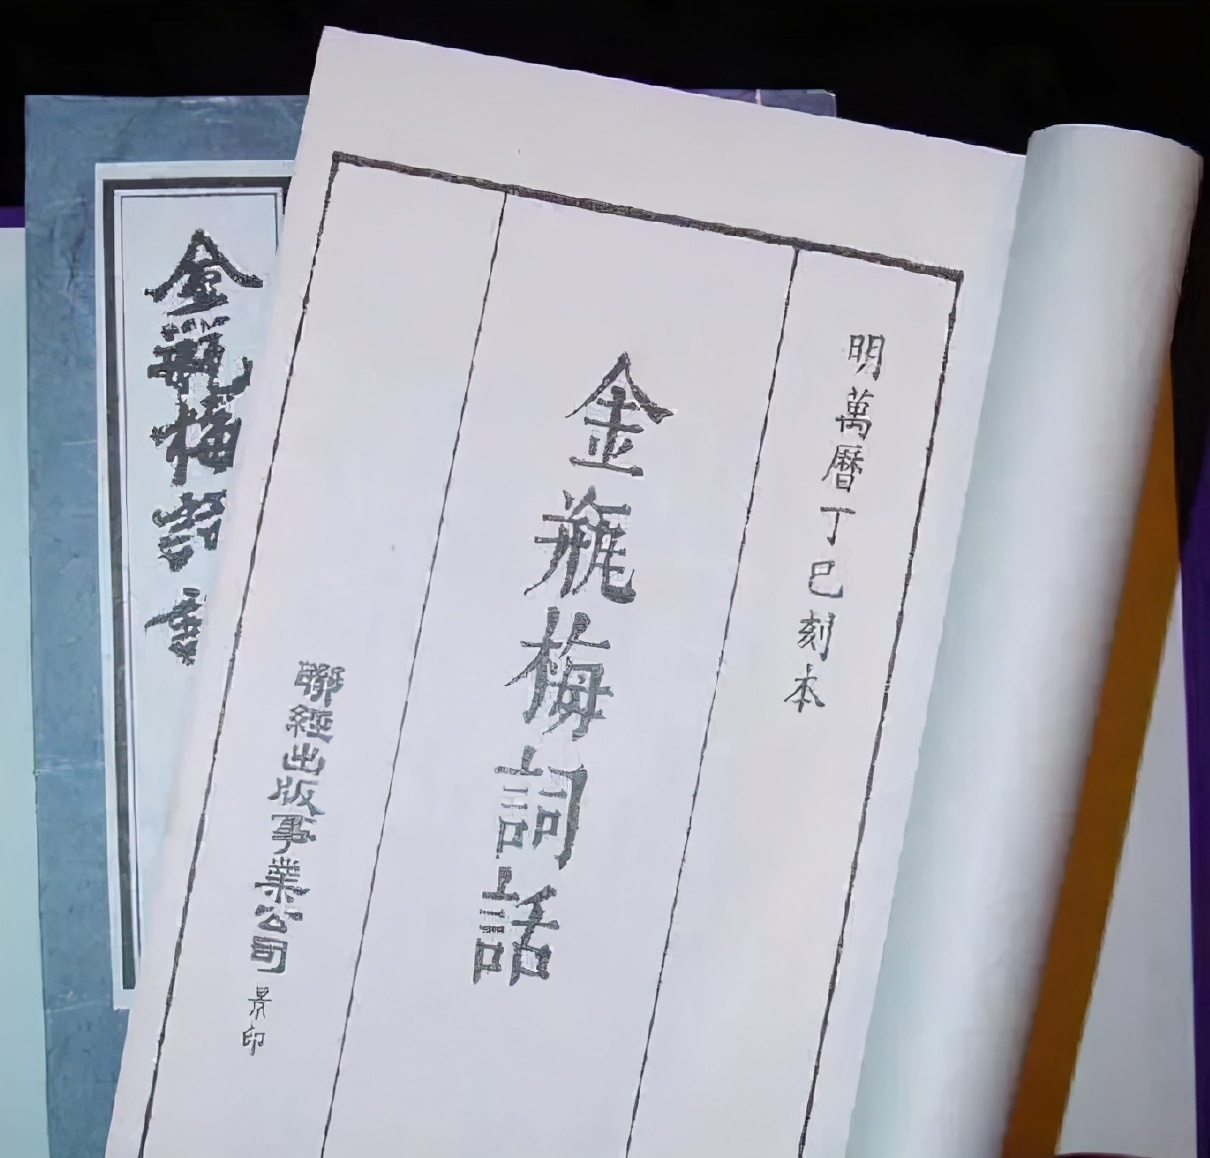 明萬曆丁巳刻本
金瓶梅詞話
聯經出版事業公司景印
金瓶梅詞話